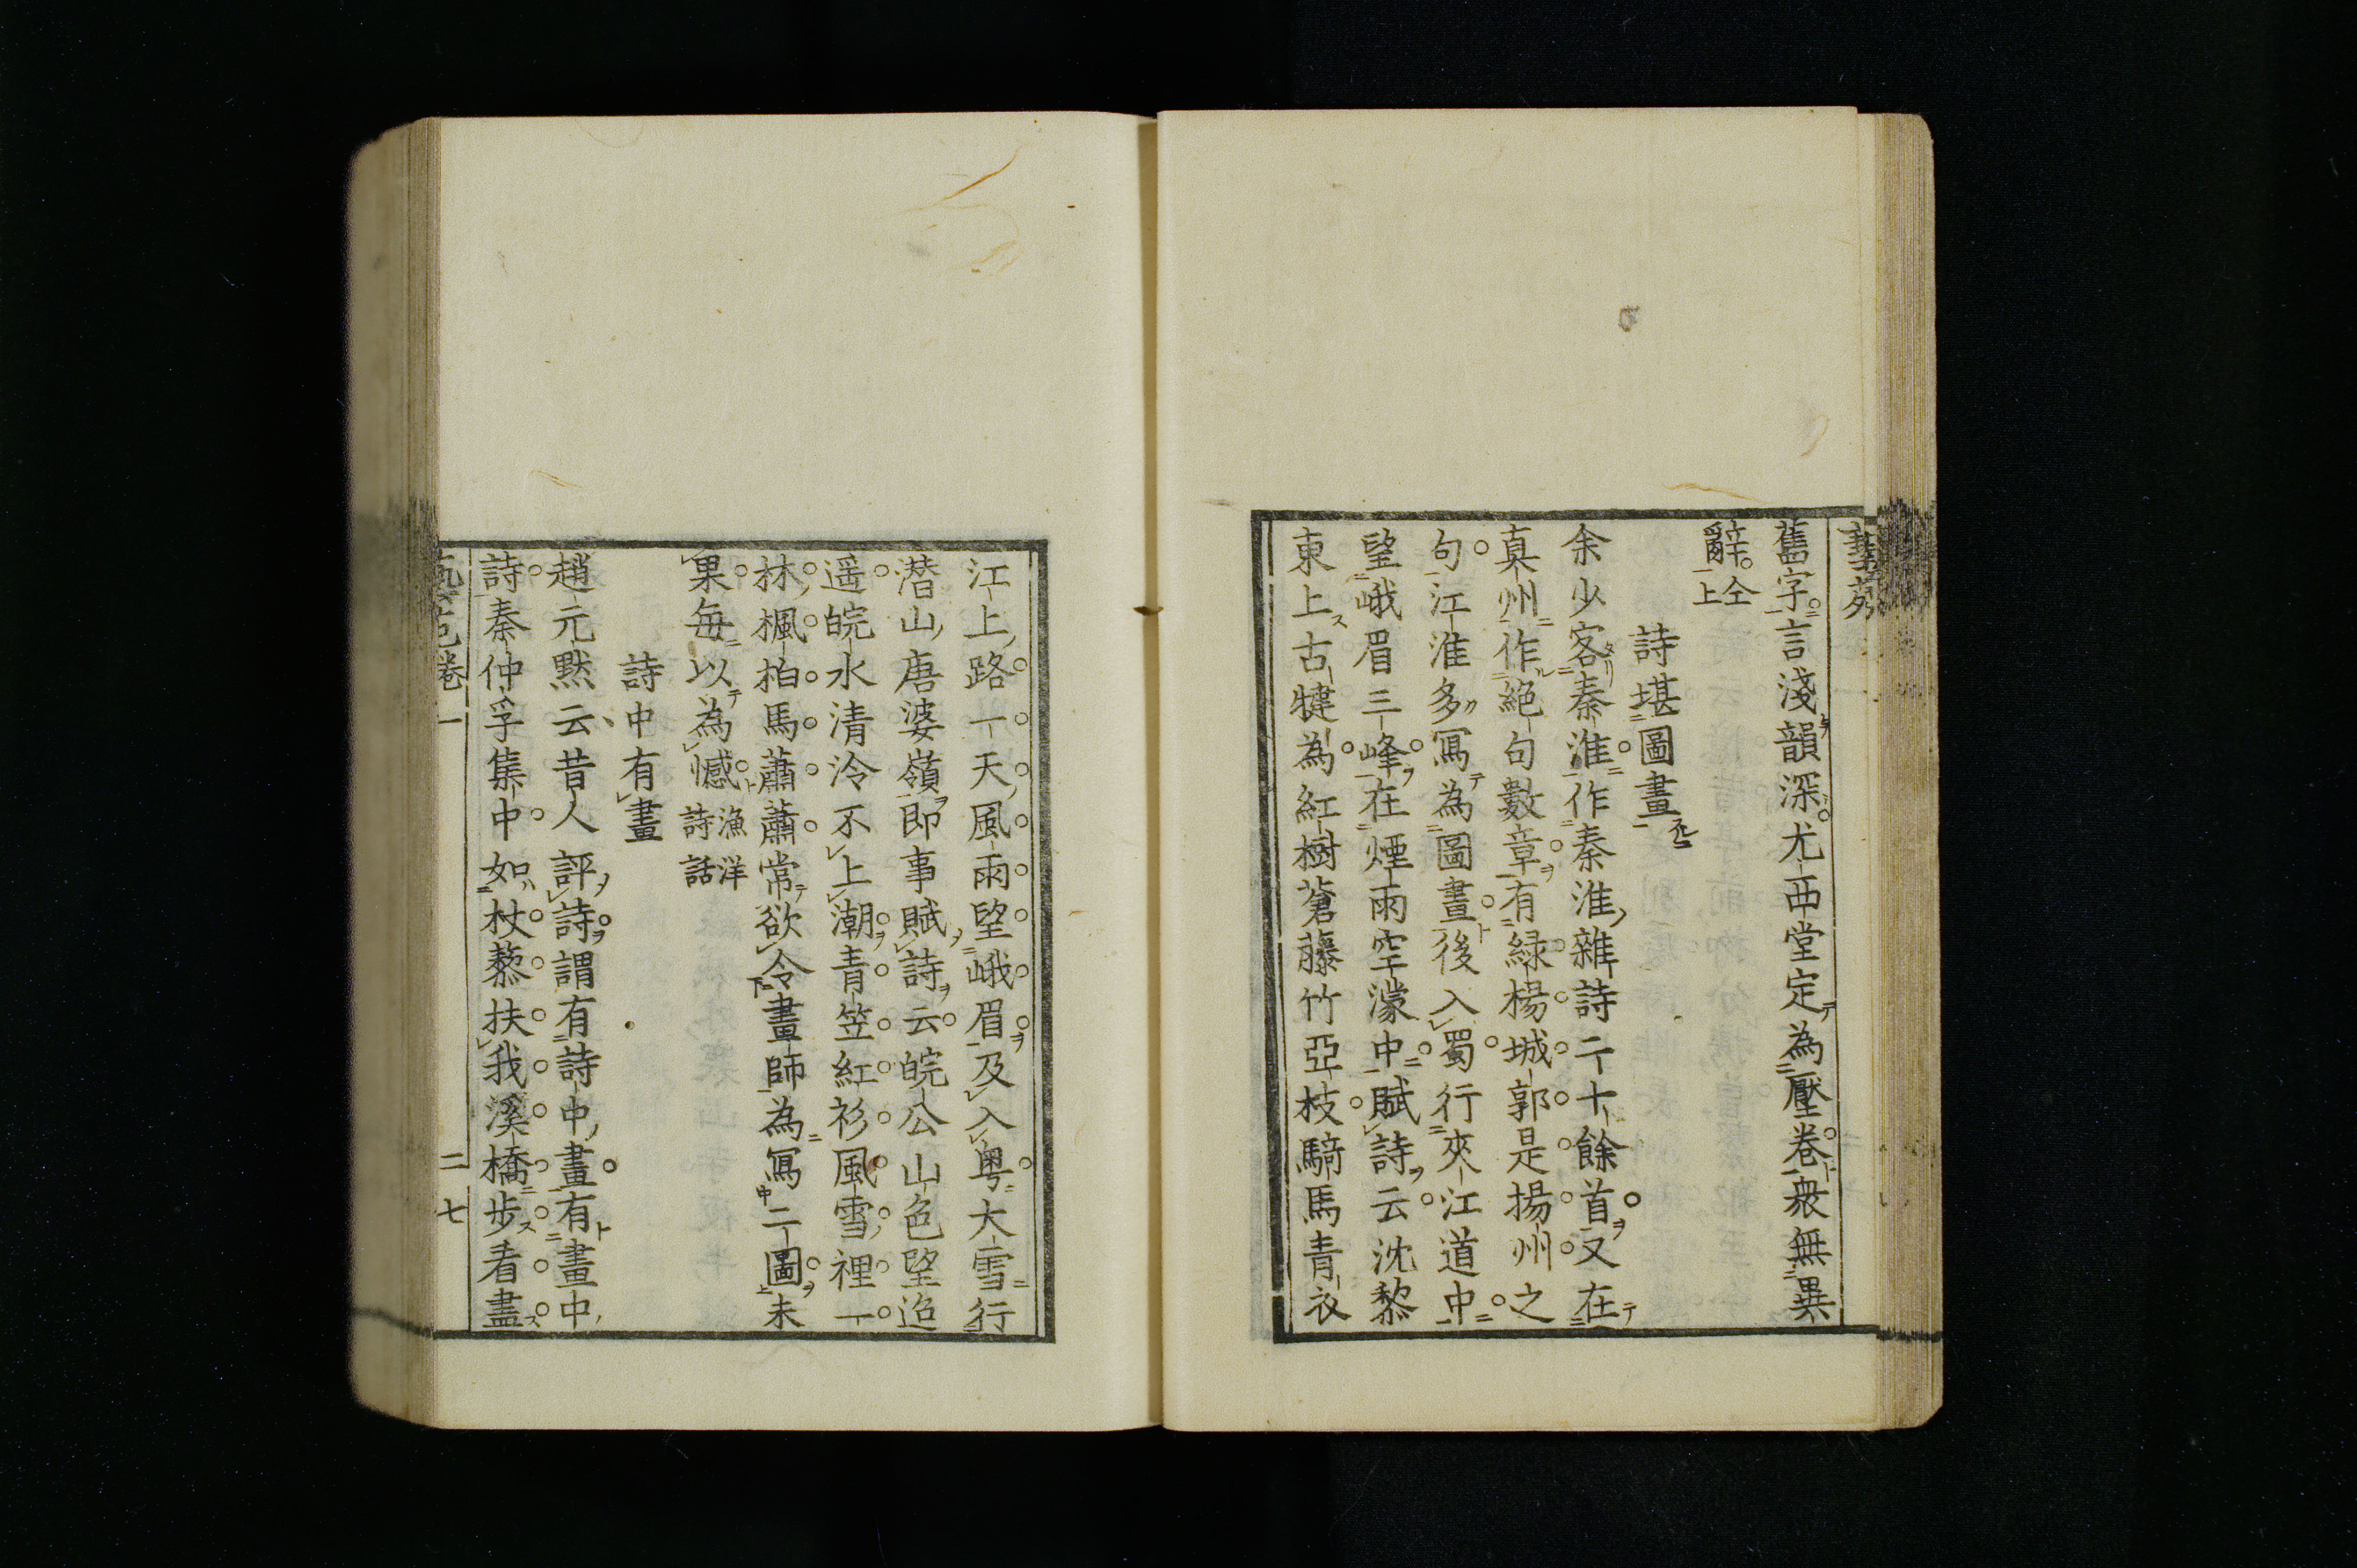 藝苑
舊字言淺韻深尤西堂定為壓卷衆無異
辭仝上
詩堪圖畫
余少客秦淮作秦淮雜詩二十餘首又在
真州作絶句數章有緑楊城郭是揚州之
句江淮多寫為圖畫後入蜀行夾江道中
望峨眉三峰在煙雨空濛中賦詩云沈黎
東上古犍為紅樹蒼藤竹亞枝騎馬青衣
江上路一天風雨望峨眉及入粤大雪行
潜山唐婆嶺即事賦詩云皖公山色望迢
遥皖水清泠不上潮青笠紅衫風雪裡一
林楓柏馬蕭蕭常欲令畫師為寫二圖未
果每以為憾漁洋詩話
詩中有畫
趙元黙云昔人評詩謂有詩中畫有畫中
詩秦仲孚集中如杖藜扶我溪橋步看盡
卷一
二七